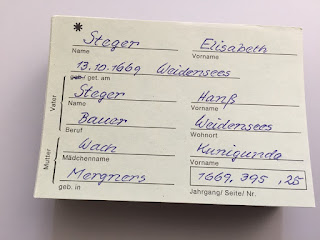 * Steger Elisabeth
Name Vorname
13.10.1669 Weidensees
geb./ get. am
Vater
Steger Hanß
Name Vorname
Bauer Weidensees
Beruf Wohnort
Mutter
Wach Kunigunda
Mädchenname Vorname
Mergners 1669, 395, 25
geb. in Jahrgang/ Seite/ Nr.